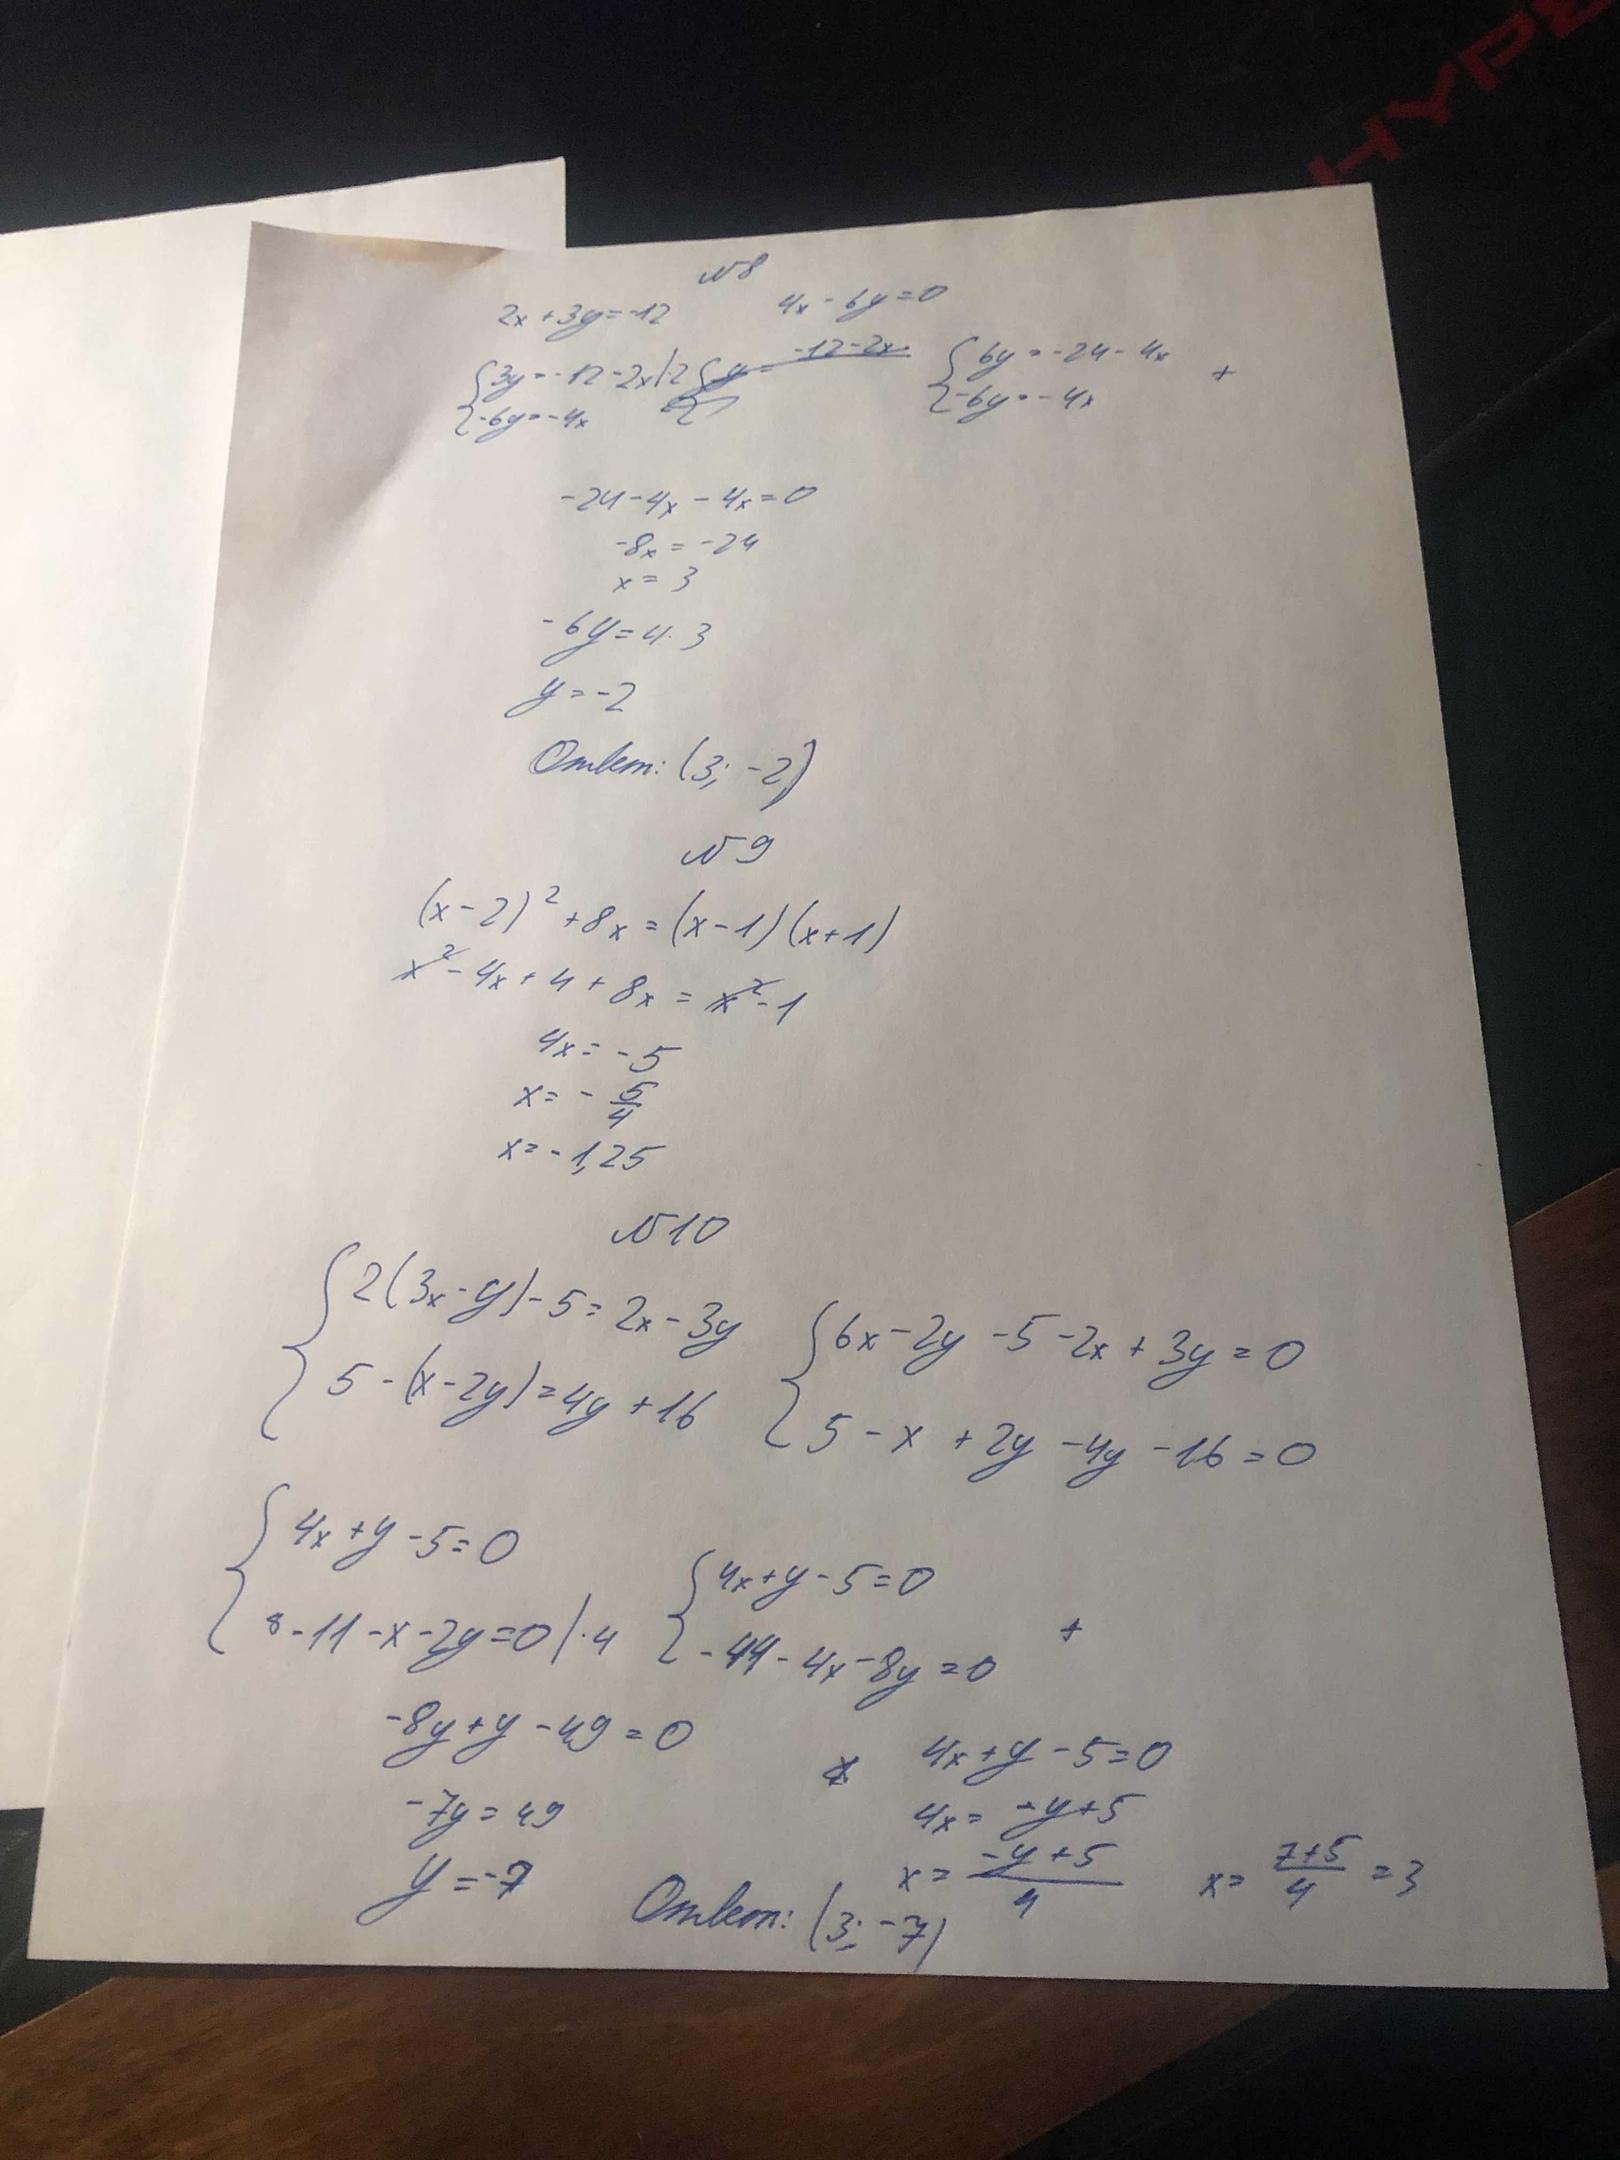 HYPE
№8
2x+3y=-12 4x-6y=0
{3y=-12-2x|·2 {y=-12-2x {6y=-24-4x +
{-6y=-4x { {-6y=-4x
-24-4x-4x=0
-8x=-24
x=3
-6y=4·3
y=-2
Ответ: (3; -2)
№9
(x-2)²+8x=(x-1)(x+1)
x²-4x+4+8x=x²-1
4x=-5
x=-5/4
x=-1,25
№10
{2(3x-y)-5=2x-3y {6x-2y-5-2x+3y=0
{5-(x-2y)=4y+16 {5-x+2y-4y-16=0
{4x+y-5=0 {4x+y-5=0
{-11-x-2y=0|·4 {-44-4x-8y=0 +
-8y+y-49=0 4x+y-5=0
-7y=49 4x=-y+5
y=-7 x=(-y+5)/4 x=(7+5)/4=3
Ответ: (3; -7)